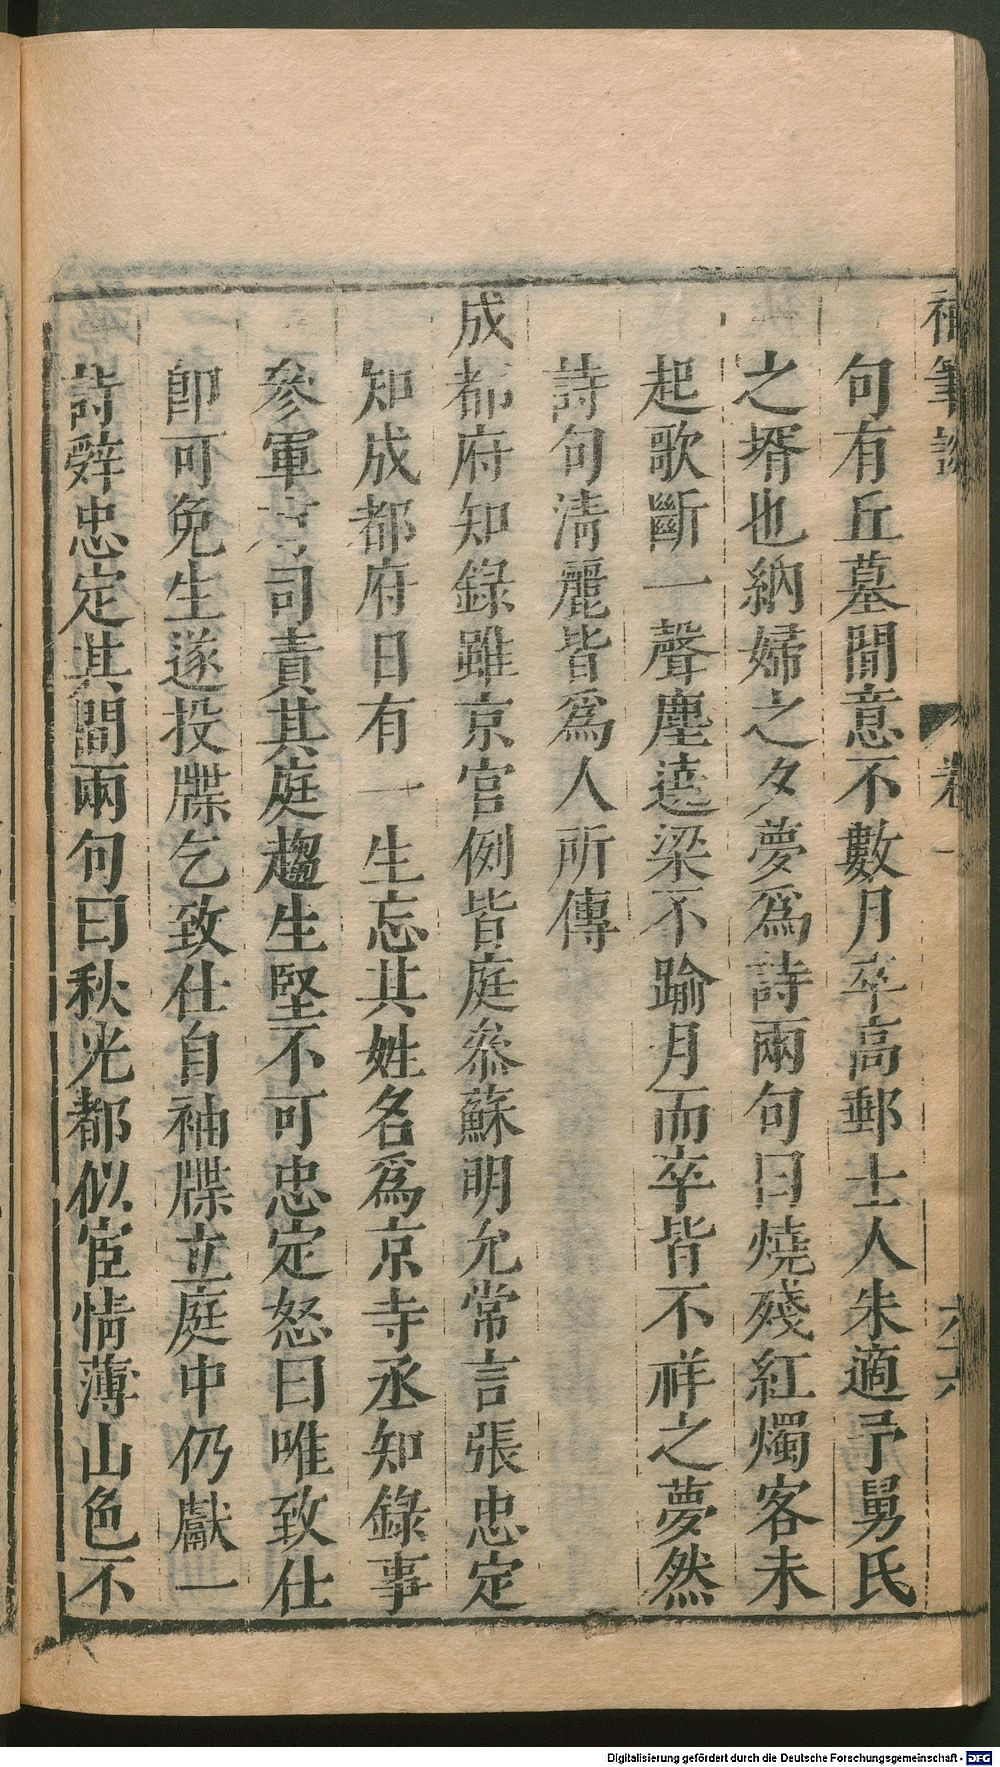 補筆談 卷一 六六
句有丘墓間意不數月卒高郵士人朱適予舅氏
之壻也納婦之夕夢為詩兩句曰燒殘紅燭客未
起歌斷一聲塵遶梁不踰月而卒皆不祥之夢然
詩句清麗皆為人所傳
成都府知錄雖京官例皆庭叅蘇明允常言張忠定
知成都府日有一生忘其姓名為京寺丞知錄事
參軍有司責其庭趨生堅不可忠定怒曰唯致仕
即可免生遂投牒乞致仕自袖牒立庭中仍獻一
詩辭忠定其間兩句曰秋光都似宦情薄山色不
Digitalisierung gefördert durch die Deutsche Forschungsgemeinschaft - DFG